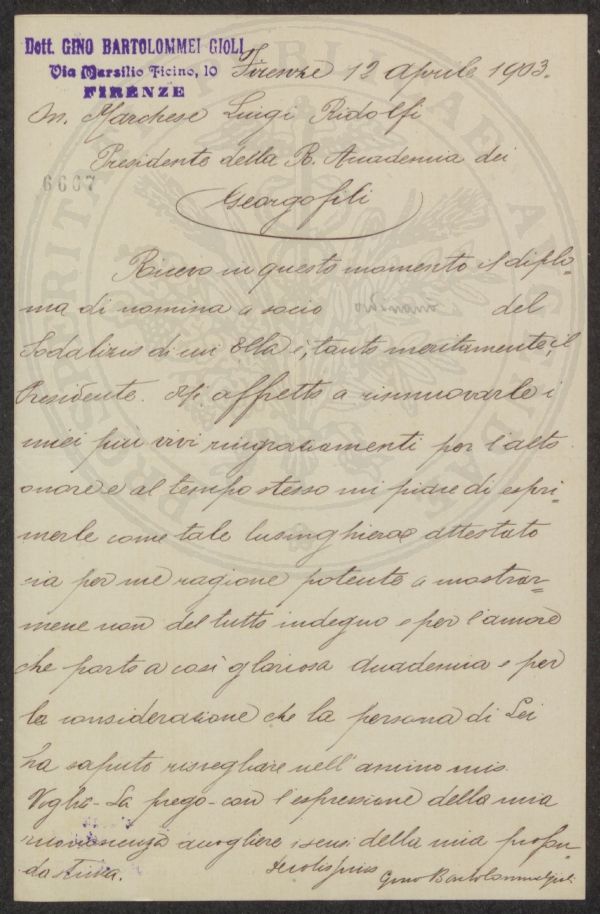 Dott. GINO BARTOLOMMEI GIOLI
Via Marsilio Ficino, 10
FIRENZE
Firenze 12 Aprile 1903.
Marchese Luigi Ridolfi
Presidente della R. Accademia dei
6667
Georgofili
Ricevo in questo momento il diplo-
ma di nomina a socio ordinario del
Sodalizio di cui Ella è, tanto meritamente, il
Presidente. Mi affretto a rinnuovarle i
miei più vivi ringraziamenti per l'alto
onore e al tempo stesso mi piace di espri-
merle come tale lusinghiero attestato
sia per me ragione potente a mostrar-
mene non del tutto indegno e per l'amore
che porto a così gloriosa Accademia e per
la considerazione che la persona di Lei
ha saputo risvegliare nell'animo mio.
Voglia - La prego - con l'espressione della mia
riconoscenza accogliere i sensi della mia profon-
da stima.
Gino Bartolommei Gioli
PROSPERITATI PUBLICAE AUGENDAE